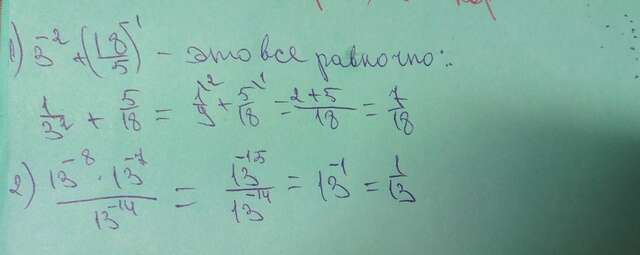 1) 3⁻² + (18/5)⁻¹ - это все равночно:
1/3² + 5/18 = 1/9 + 5/18 = (2+5)/18 = 7/18
2) (13⁻⁸ · 13⁻⁷)/13⁻¹⁴ = 13⁻¹⁵/13⁻¹⁴ = 13⁻¹ = 1/13